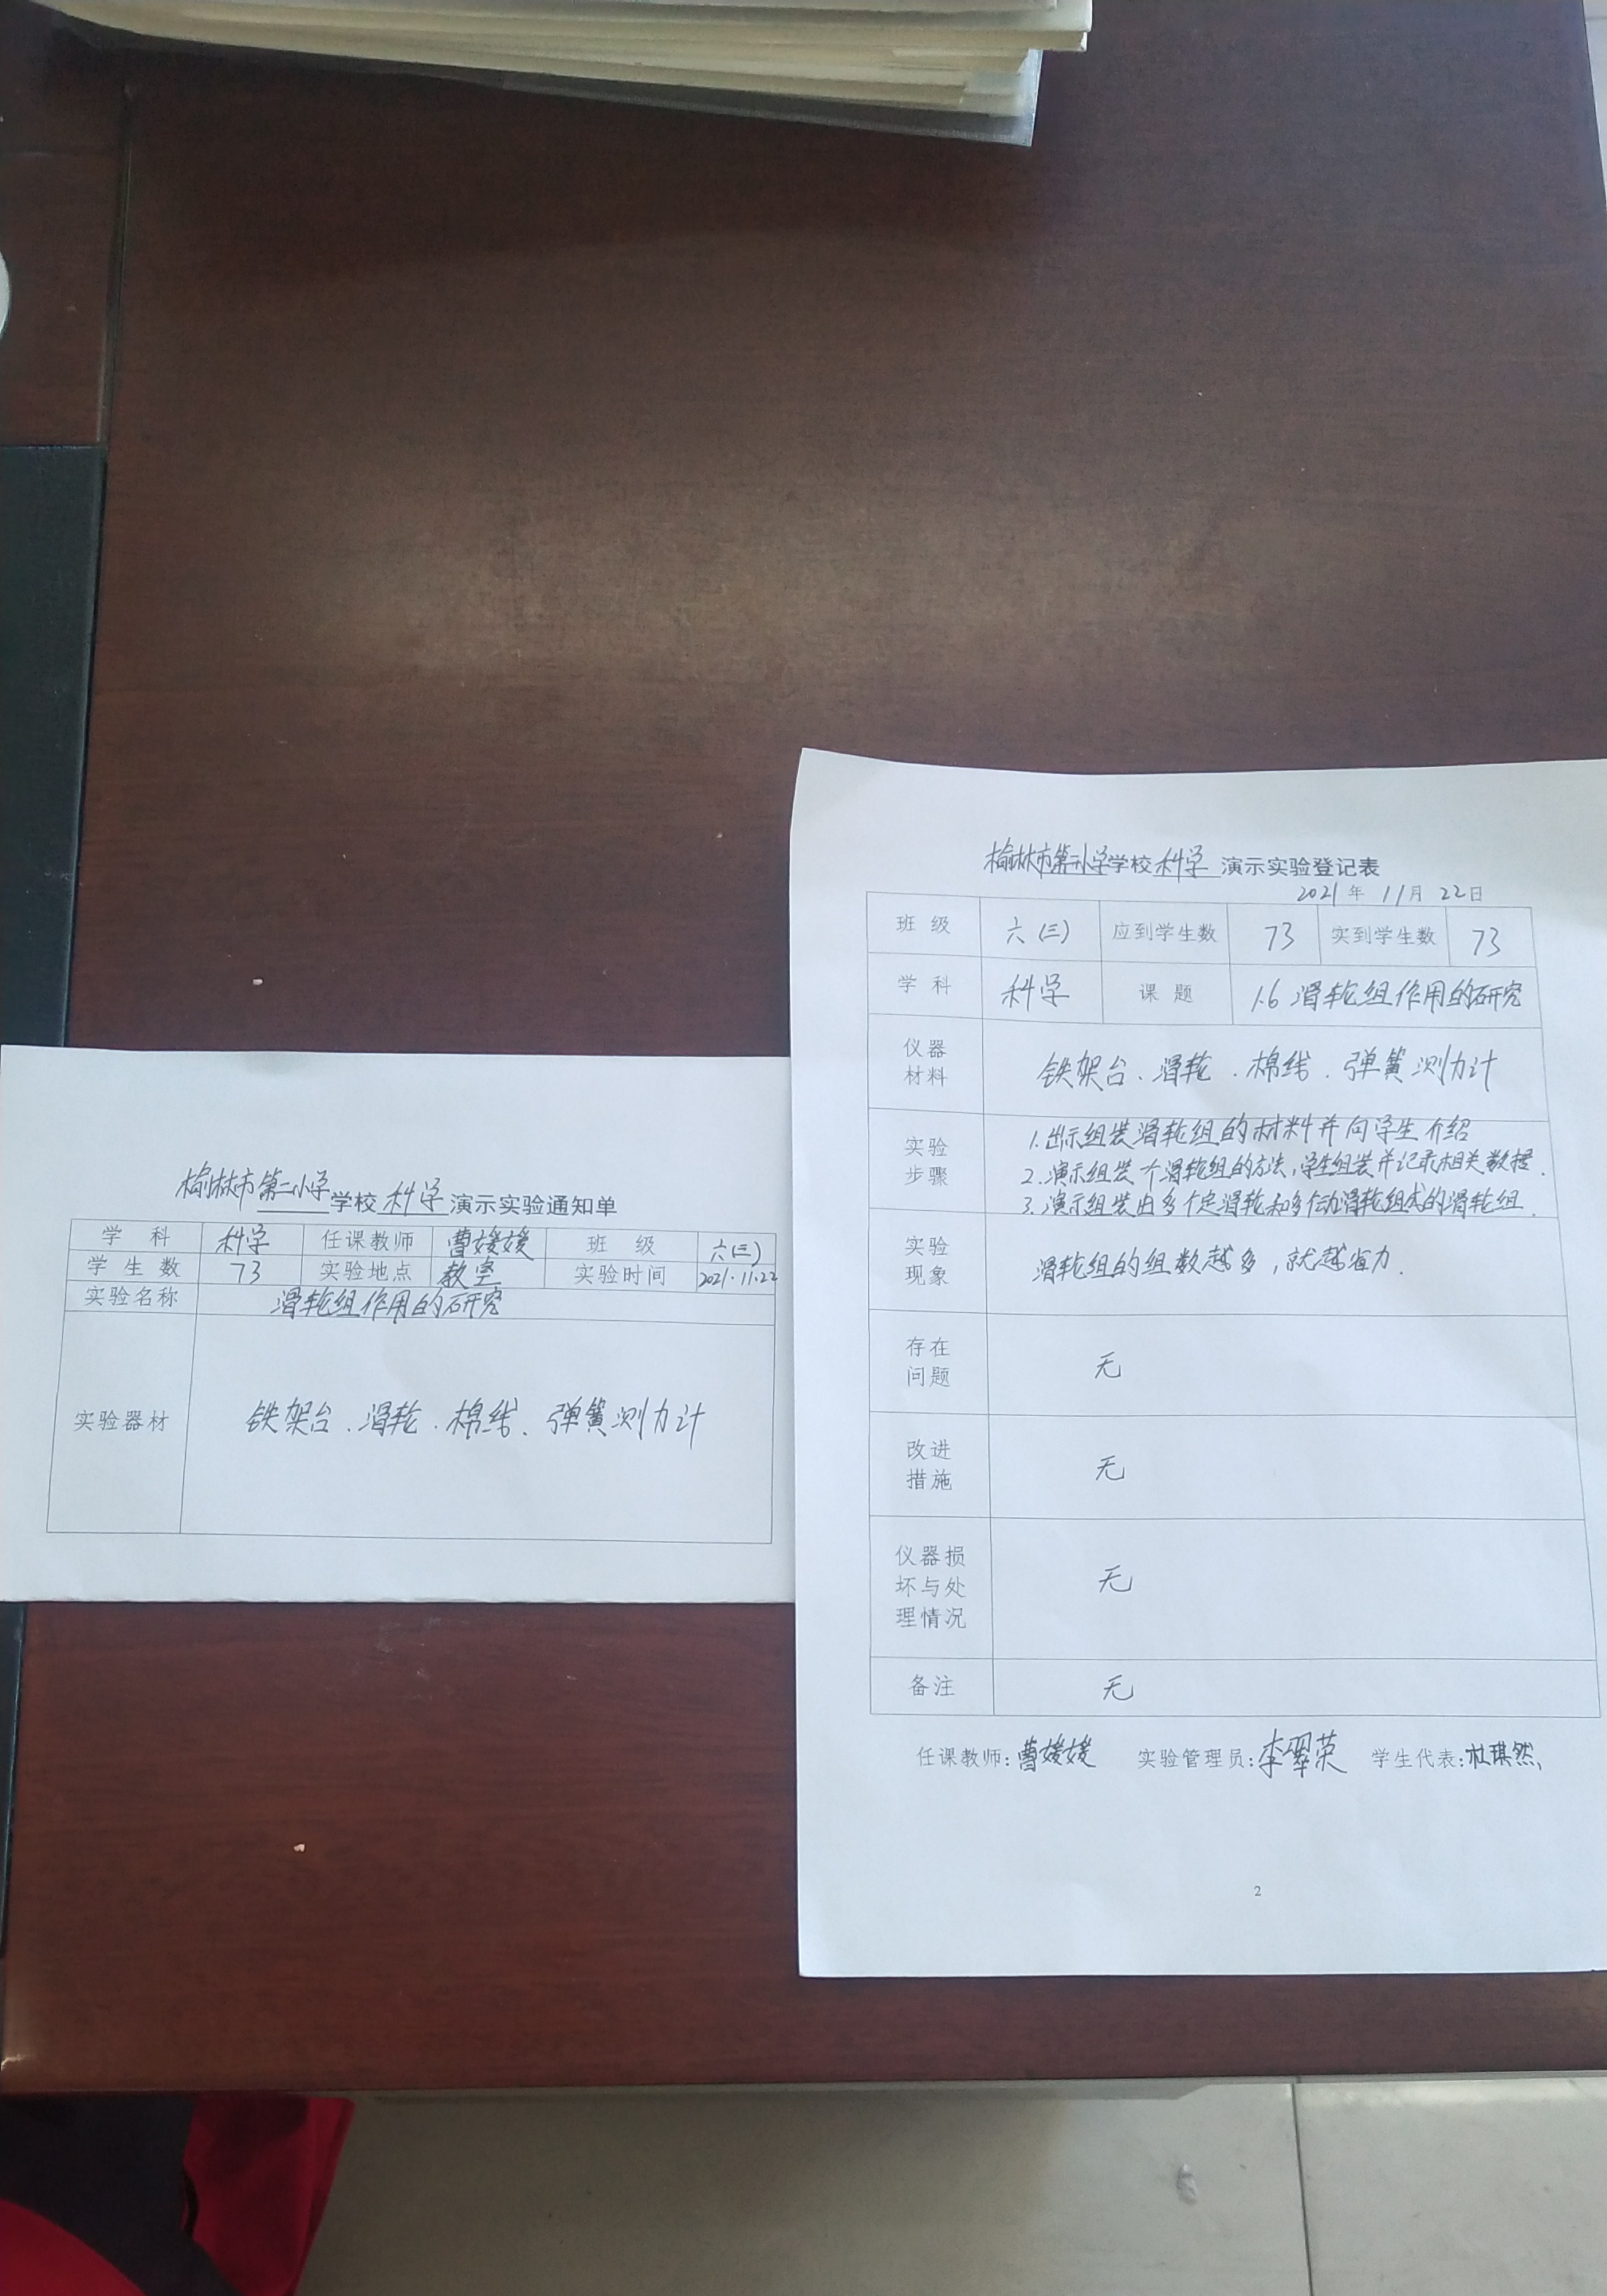 榆林市第二小学学校科学演示实验通知单
学 科 科学 任课教师 曹媛媛 班 级 六(三)
学生数 73 实验地点 教室 实验时间 2021.11.22
实验名称 滑轮组作用的研究
实验器材 铁架台、滑轮、棉线、弹簧测力计
榆林市第二小学学校科学演示实验登记表
2021年 11月 22日
班 级 六(三) 应到学生数 73 实到学生数 73
学 科 科学 课 题 1.6 滑轮组作用的研究
仪器
材料
铁架台、滑轮、棉线、弹簧测力计
实验
步骤
1.出示组装滑轮组的材料并向学生介绍
2.演示组装一个滑轮组的方法,学生组装并记录相关数据.
3.演示组装由多个定滑轮和多个动滑轮组成的滑轮组.
实验
现象
滑轮组的组数越多,就越省力.
存在
问题
无
改进
措施
无
仪器损
坏与处
理情况
无
备注 无
任课教师:曹媛媛 实验管理员:李翠荣 学生代表:杜琪然
2